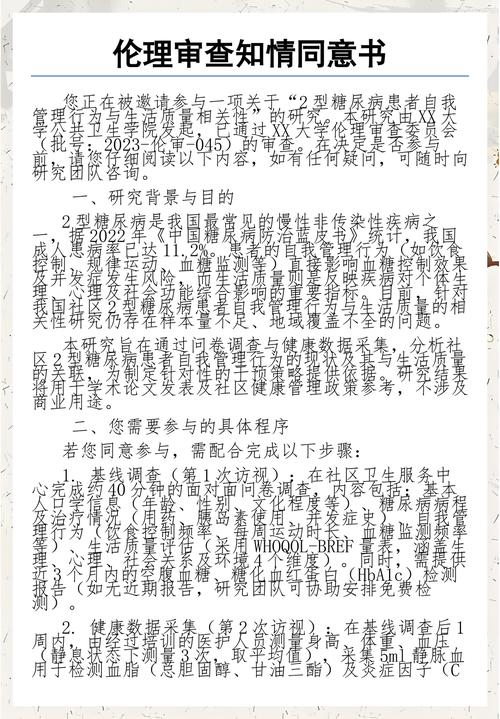 伦理审查知情同意书
您正在被邀请参与一项关于“2型糖尿病患者自我
管理行为与生活质量相关性”的研究。本研究由XX大
学公共卫生学院发起，已通过XX大学伦理审查委员会
（批号：2023-伦审-045）的审查。在决定是否参与
前，请您仔细阅读以下内容，如有任何疑问，可随时向
研究团队咨询。
一、研究背景与目的
2型糖尿病是我国最常见的慢性非传染性疾病之
一，据2022年《中国糖尿病防治蓝皮书》统计，我国
成人患病率已达11.2%。患者的自我管理行为（如饮食
控制、规律运动、血糖监测等）直接影响血糖控制效果
及并发症发生风险，而生活质量则是反映疾病对个体生
理、心理及社会功能综合影响的重要指标。目前，针对
我国社区2型糖尿病患者自我管理行为与生活质量的相
关性研究仍存在样本量不足、地域覆盖不全的问题。
本研究旨在通过问卷调查与健康数据采集，分析社
区2型糖尿病患者自我管理行为的现状及其与生活质量
的关联，为制定针对性的干预策略提供依据。研究结果
将用于学术论文发表及社区健康管理政策参考，不涉及
商业用途。
二、您需要参与的具体程序
若您同意参与，需配合完成以下步骤：
1. 基线调查（第1次访视）：在社区卫生服务中
心完成约40分钟的面对面问卷调查，内容包括：基本
人口学信息（年龄、性别、文化程度等）、糖尿病病程
及治疗情况（用药、胰岛素使用、并发症史）、自我管
理行为（饮食控制频率、每周运动时长、血糖监测频率
等）、生活质量评估（采用WHOQOL-BREF量表，涵盖生
理、心理、社会关系及环境4个维度）。同时，需提供
近3个月内的空腹血糖、糖化血红蛋白（HbA1c）检测
报告（如无近期报告，研究团队可协助安排免费检
测）。
2. 健康数据采集（第2次访视）：在基线调查后1
周内，由经过培训的医护人员测量身高、体重、血压
（静息状态下测量3次，取平均值），采集5ml静脉血
用于检测血脂（总胆固醇、甘油三酯）及炎症因子（C